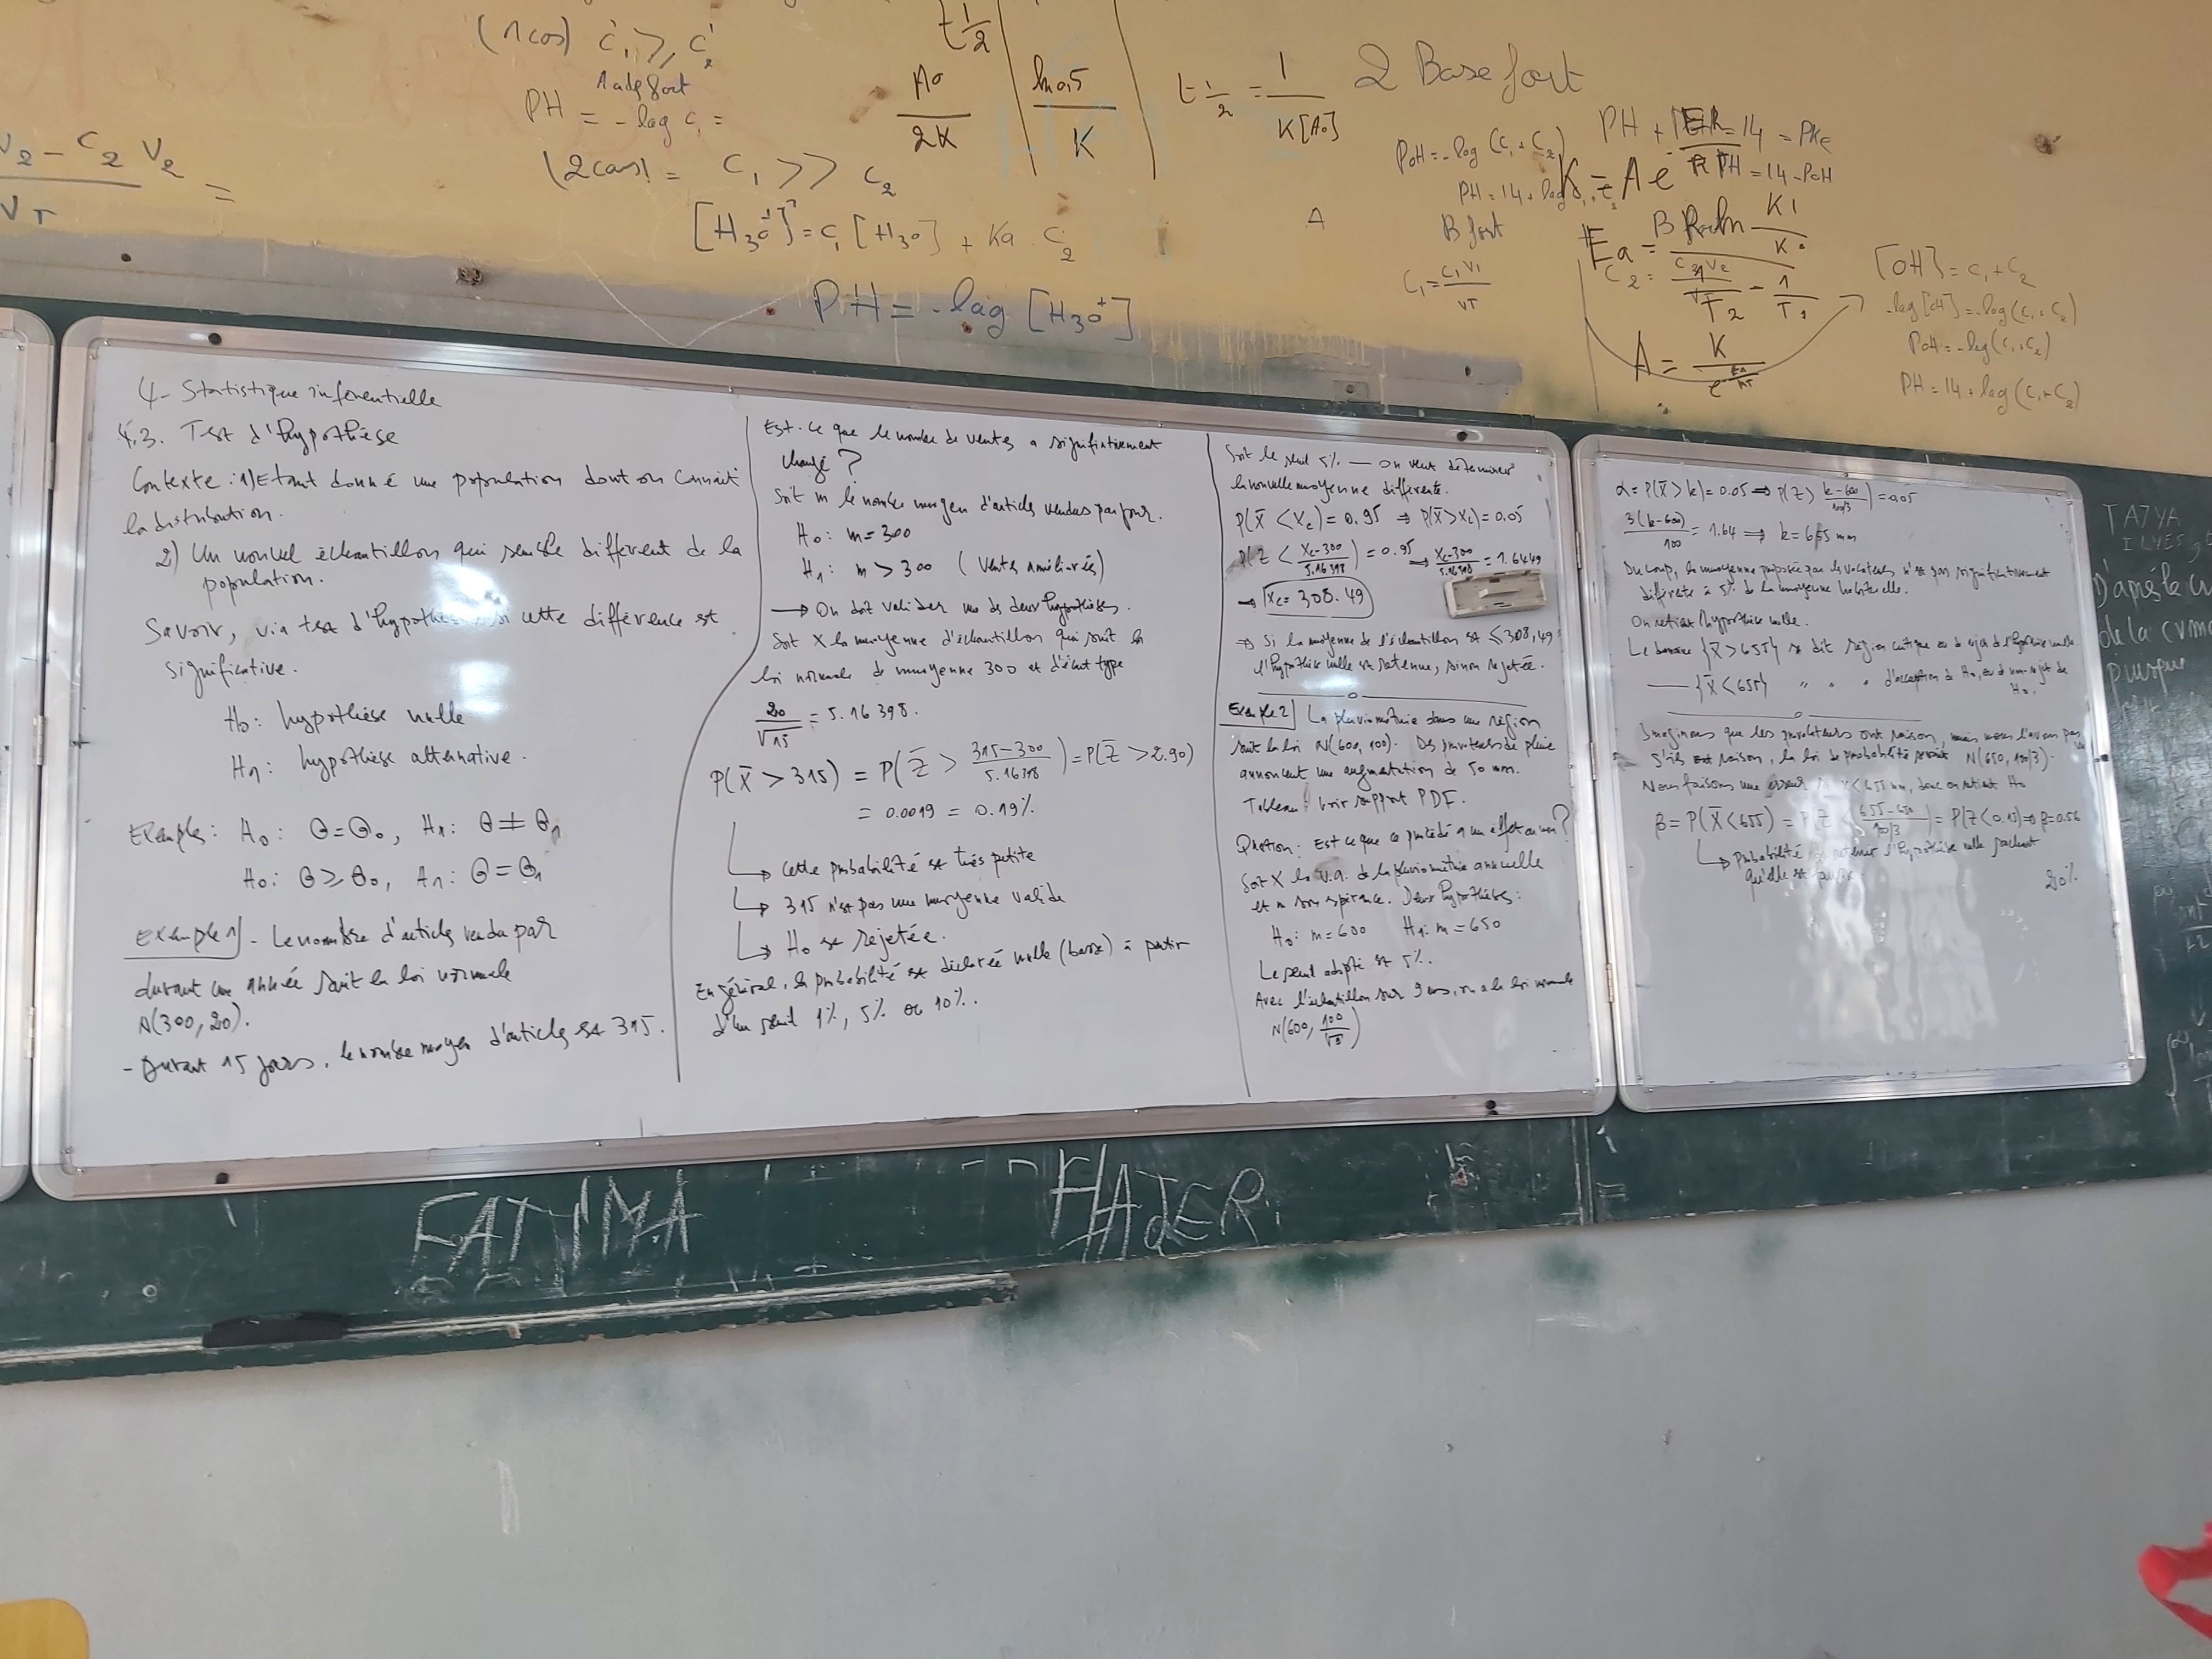 (1cas) C₁ ≥ C₂
1 acide fort
PH = -log C₁ =
(2cas) = C₁ >> C₂
[H₃O⁺] = C₁ [H₃O] + Ka C₂
PH = -log [H₃O⁺]
V₂ - C₂ V₂ / VT =
t 1/2
A₀ / 2K
ln 0.5 / K
t 1/2 = 1 / K[A₀]
2 Base fort
POH = -log (C₁ + C₂)
PH = 14 + log
PH + = 14 = PKe
PH = 14 - POH
K = A e
A
B fort
C₁ = C₁V₁ / VT
Ea =
1/T₂ - 1/T₁
A = K / e
[OH] = C₁ + C₂
-log [OH] = -log (C₁ + C₂)
POH = -log (C₁ + C₂)
PH = 14 + log (C₁ + C₂)
4- Statistique inferentielle
4.3. Test d'hypothèse
Contexte : 1) Etant donné une population dont on connait
la distribution.
2) Un nouvel échantillon qui semble différent de la
population.
Savoir, via test d'hypothèse si cette différence est
significative.
H₀ : hypothèse nulle
H₁ : hypothèse alternative.
Exemple : H₀ : θ = θ₀, H₁ : θ ≠ θ₁
H₀ : θ ≥ θ₀, H₁ : θ = θ₁
Exemple 1 - Le nombre d'articles vendu par
durant une année suit la loi normale
N(300, 20).
- Durant 15 jours, le nombre moyen d'articles est 315.
Est-ce que le nombre de ventes a significativement
changé ?
Soit m le nombre moyen d'articles vendus par jour.
H₀ : m = 300
H₁ : m > 300 (Ventes améliorées)
→ On doit valider une des deux hypothèses.
Soit X la moyenne d'échantillon qui suit la
loi normale de moyenne 300 et d'écart type
20/√15 = 5.16398.
P(X̄ > 315) = P(Z̄ > (315-300)/5.16398) = P(Z̄ > 2.90)
= 0.0019 = 0.19%
↳ Cette probabilité est très petite
↳ 315 n'est pas une moyenne valide
↳ H₀ est rejetée.
En général, la probabilité est déclarée nulle (basse) à partir
d'un seuil 1%, 5% ou 10%.
Soit le seuil 5% — On veut déterminer
la nouvelle moyenne différente.
P(X̄ < Xc) = 0.95 ⇒ P(X̄ > Xc) = 0.05
P(Z < (Xc-300)/5.16398) = 0.95 → (Xc-300)/5.16398 = 1.6449
→ Xc = 308.49
⇒ Si la moyenne de l'échantillon est ≤ 308,49
l'hypothèse nulle est retenue, sinon rejetée.
Exemple 2 La pluviométrie dans une région
suit la loi N(600, 100). Des de pluie
annoncent une augmentation de 50 mm.
Tableau : voir support PDF.
Question : Est ce que ce procédé a un effet ou non ?
Soit X la v.a. de la pluviométrie annuelle
et m son espérance. Deux hypothèses :
H₀ : m = 600 H₁ : m = 650
Le seuil adopté est 5%.
Avec l'échantillon sur 9 ans, on a la loi normale
N(600, 100/√9)
α = P(X̄ > k) = 0.05 ⇒ P(Z > (k-600)/(100/3)) = 0.05
3(k-600)/100 = 1.64 ⇒ k = 655 mm
Du coup, la moyenne proposée par les n'est pas significativement
différente à 5% de la moyenne habituelle.
On retient l'hypothèse nulle.
Le domaine {X̄ > 655} se dit région critique ou de rejet de l'hypothèse nulle.
— {X̄ < 655} " " " d'acceptation de H₀, ou de non-rejet de
H₀.
Imaginons que les ont raison, mais nous l'avons pas
S'ils ont raison, la loi de probabilité serait N(650, 100/3).
Nous faisons une erreur si X < 655 mm, donc on retient H₀
β = P(X̄ < 655) = P(Z < (655-650)/(100/3)) = P(Z < 0.15) ⇒ β = 0.56
↳ probabilité de retenir l'hypothèse nulle sachant
qu'elle est fausse.
20%
TATYA
ILYES
D'après le
de la
puisque
FATIMA
HAJER